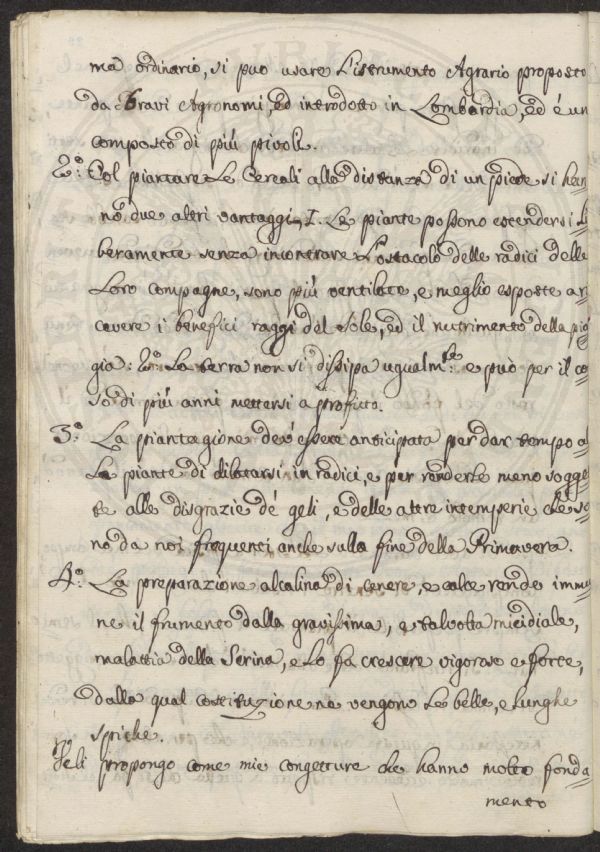 ma ordinario, si può usare L'istrumento Agrario proposto
da Bravi Agronomi, ed introdotto in Lombardia, ed è un
composto di più pivoli.
2.° Col piantare Le Cereali alla distanza di un piede si han=
no due altri vantaggi, I. Le piante possono estendersi li=
beramente senza incontrare L'ostacolo delle radici delle
Loro compagne, sono più ventilate, e meglio esposte a ri=
cevere i benefici raggi del Sole, ed il nutrimento della piog=
gia: 2.° La terra non si dissipa ugualm.te e può per il co=
so di più anni mettersi a profitto.
3.° La piantagione dev'essere anticipata per dar tempo a=
Le piante di dilatarsi in radici, e per renderle meno sogge=
te alle disgrazie de' geli, e delle altre intemperie che so=
no da noi frequenti anche sulla fine della Primavera.
4.° La preparazione alcalina di cenere, e calce rende immu=
ne il frumento dalla gravissima, e talvolta micidiale,
malattia della Serina, e Lo fa crescere vigoroso e forte,
dalla qual costituzione ne vengono Le belle, e Lunghe
spiche.
propongo come mie congetture che hanno molto fonda=
mento